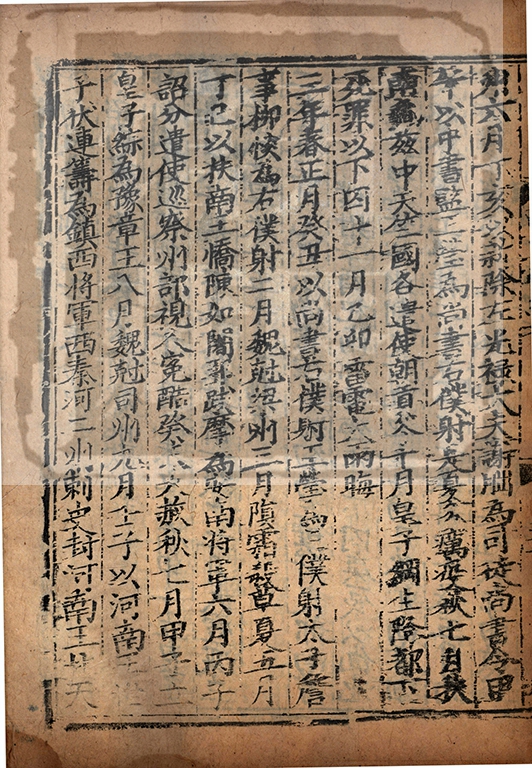 州六月丁亥以新除左光祿大夫謝朏為司徒尚書令甲
午以中書監王瑩為尚書右僕射是夏多癘疫秋七月扶
南龜茲中天竺國各遣使朝貢冬十月皇子綱生降都下
死罪以下囚十一月乙卯雷電大雨晦
三年春正月癸丑以尚書右僕射王瑩為左僕射太子詹
事柳惔為右僕射二月魏剋梁州三月隕霜殺草夏五月
丁巳以扶南王憍陳如闍耶跋摩為安南將軍六月丙子
詔分遣使巡察州部視人冤酷癸未大赦秋七月甲子立
皇子綜為豫章王八月魏剋司州九月壬子以河南王
子伏連籌為鎮西將軍西秦河二州刺史封河南王北天